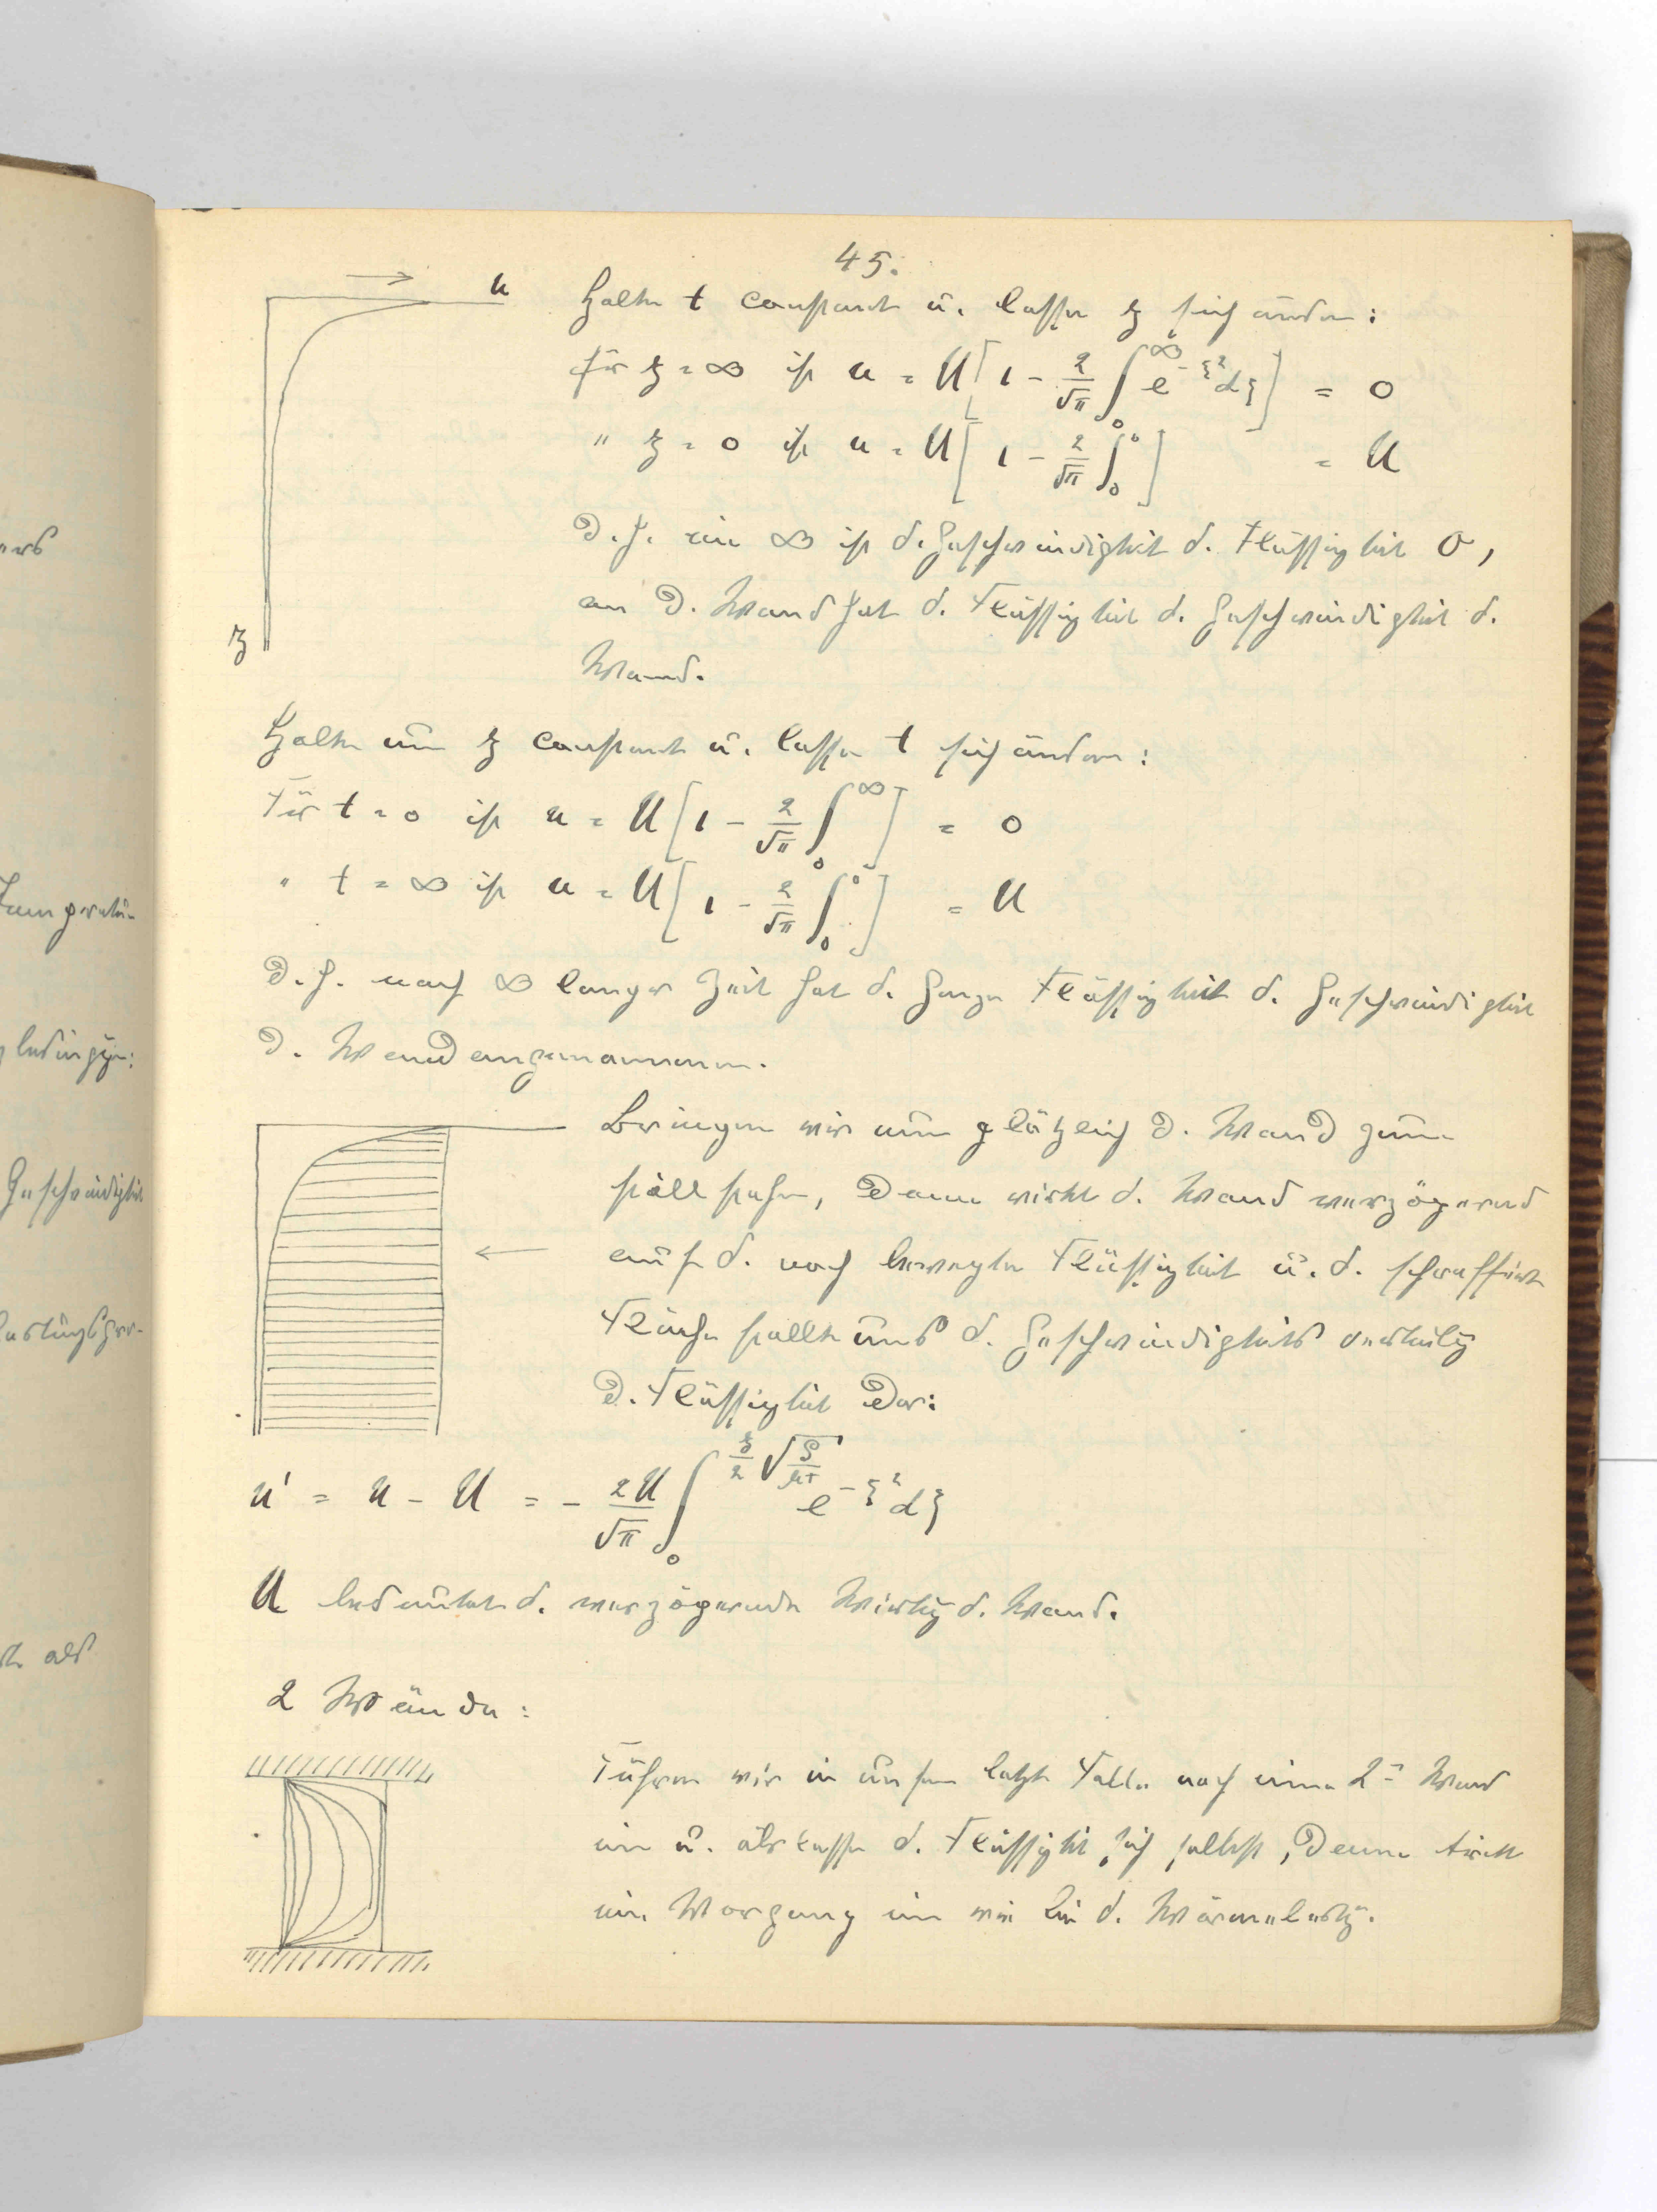 45.
u
Halte t constant u. lasse z sich ändern:
für z = ∞ ist u = U[1 - 2/√π ∫₀^∞ e^{-ξ²}dξ] = 0
" z = 0 ist u = U[1 - 2/√π ∫₀^0 ] = U
D.h. im ∞ ist d. Geschwindigkeit d. Flüssigkeit 0,
an d. Wand hat d. Flüssigkeit d. Geschwindigkeit d.
z
Wand.
Halte nun z constant u. lasse t sich ändern:
Für t = 0 ist u = U[1 - 2/√π ∫₀^∞ ] = 0
" t = ∞ ist u = U[1 - 2/√π ∫₀^0 ] = U
D.h. nach ∞ langer Zeit hat d. ganze Flüssigkeit d. Geschwindigkeit
d. Wand angenommen.
Bringen wir nun plötzlich d. Wand zum
stillstehn, dann wirkt d. Wand verzögernd
auf d. noch bewegte Flüssigkeit u. d. schraffirte
Fläche stellt uns d. Geschwindigkeits verteilg
d. Flüssigkeit dar:
u' = u - U = - 2U/√π ∫₀^{z/2 √(ρ/μt)} e^{-ξ²}dξ
U bedeutet d. verzögernde Wirkg d. Wand.
2 Wände:
Führen wir in unsern letzt Falle noch eine 2te Wand
ein u. überlassen d. Flüssigkt sich selbst, dann tritt
ein Vorgang ein wie bei d. Wärmeleitg.